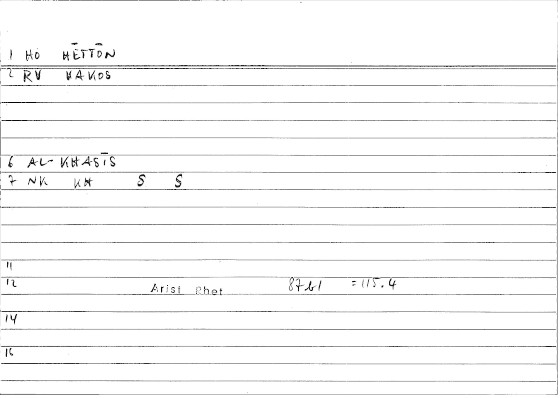 1 HO HĒTTŌN
2 RV KAKOS
6 AL-KHASĪS
7 NK KH S S
11
12 Arist Rhet 87b1 =115.4
14
16